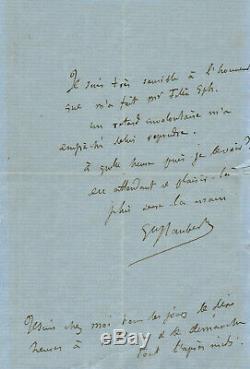 Je suis très sensible à l'honneur
que m'a fait Mr Félix
un retard involontaire m'a
empêché de lui répondre.
à quelle heure puis-je le voir?
en attendant ce plaisir là
je lui serre la main
G Flaubert
Je suis chez moi tous les jours de
heures à & le dimanche
tout l'après midi.